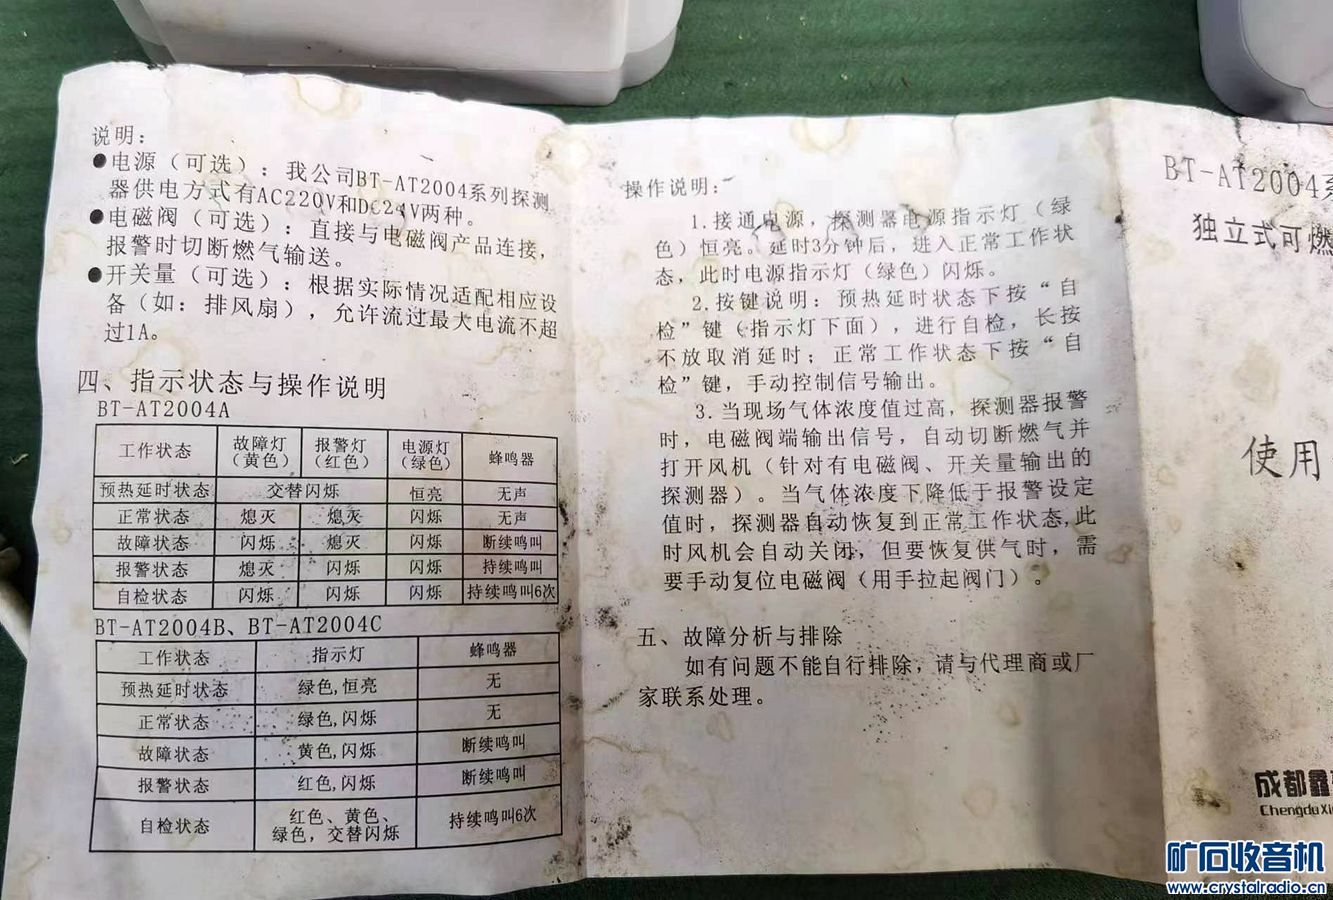 说明：
●电源（可选）：我公司BT-AT2004系列探测
器供电方式有AC220V和DC24V两种。
●电磁阀（可选）：直接与电磁阀产品连接，
报警时切断燃气输送。
●开关量（可选）：根据实际情况适配相应设
备（如：排风扇），允许流过最大电流不超
过1A。
四、指示状态与操作说明
BT-AT2004A
工作状态 故障灯（黄色） 报警灯（红色） 电源灯（绿色） 蜂鸣器
预热延时状态 交替闪烁 恒亮 无声
正常状态 熄灭 熄灭 闪烁 无声
故障状态 闪烁 熄灭 闪烁 断续鸣叫
报警状态 熄灭 闪烁 闪烁 持续鸣叫
自检状态 闪烁 闪烁 闪烁 持续鸣叫6次
BT-AT2004B、BT-AT2004C
工作状态 指示灯 蜂鸣器
预热延时状态 绿色,恒亮 无
正常状态 绿色,闪烁 无
故障状态 黄色,闪烁 断续鸣叫
报警状态 红色,闪烁 断续鸣叫
自检状态 红色、黄色、绿色，交替闪烁 持续鸣叫6次
操作说明：
1.接通电源，探测器电源指示灯（绿
色）恒亮。延时3分钟后，进入正常工作状
态，此时电源指示灯（绿色）闪烁。
2.按键说明：预热延时状态下按“自
检”键（指示灯下面），进行自检，长按
不放取消延时；正常工作状态下按“自
检”键，手动控制信号输出。
3.当现场气体浓度值过高，探测器报警
时，电磁阀端输出信号，自动切断燃气并
打开风机（针对有电磁阀、开关量输出的
探测器）。当气体浓度下降低于报警设定
值时，探测器自动恢复到正常工作状态,此
时风机会自动关闭，但要恢复供气时，需
要手动复位电磁阀（用手拉起阀门）。
五、故障分析与排除
如有问题不能自行排除，请与代理商或厂
家联系处理。
BT-AT2004系
独立式可燃
使用
成都鑫
ChengduXi
矿石收音机
www.crystalradio.cn